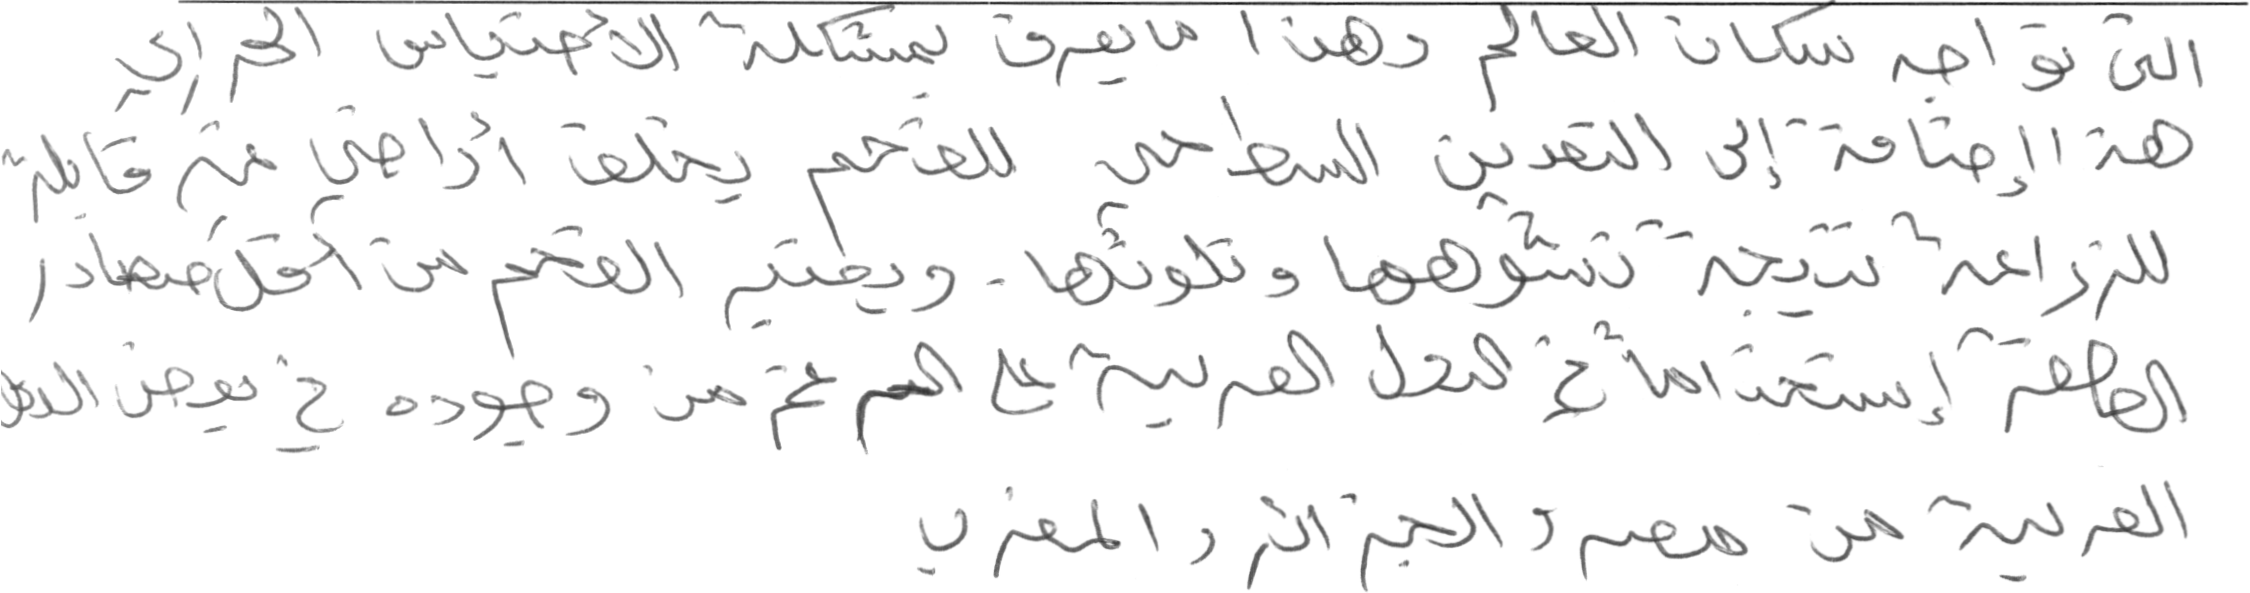 التى تواجه سكان العالم وهذا ما يعرف بمشكلة الاحتباس الحرارى
هذة الإضافة إلى التعدين السطحى للفحم يخلف أراضى غير قابلة
للزراعة نتيجة تشوهها وتلوثها. ويعتبر الفحم من أقل مصادر
الطاقة إستخداماً في الدول العربية على الرغم من وجوده في بعض
العربية من مصر والجزائر والمغرب